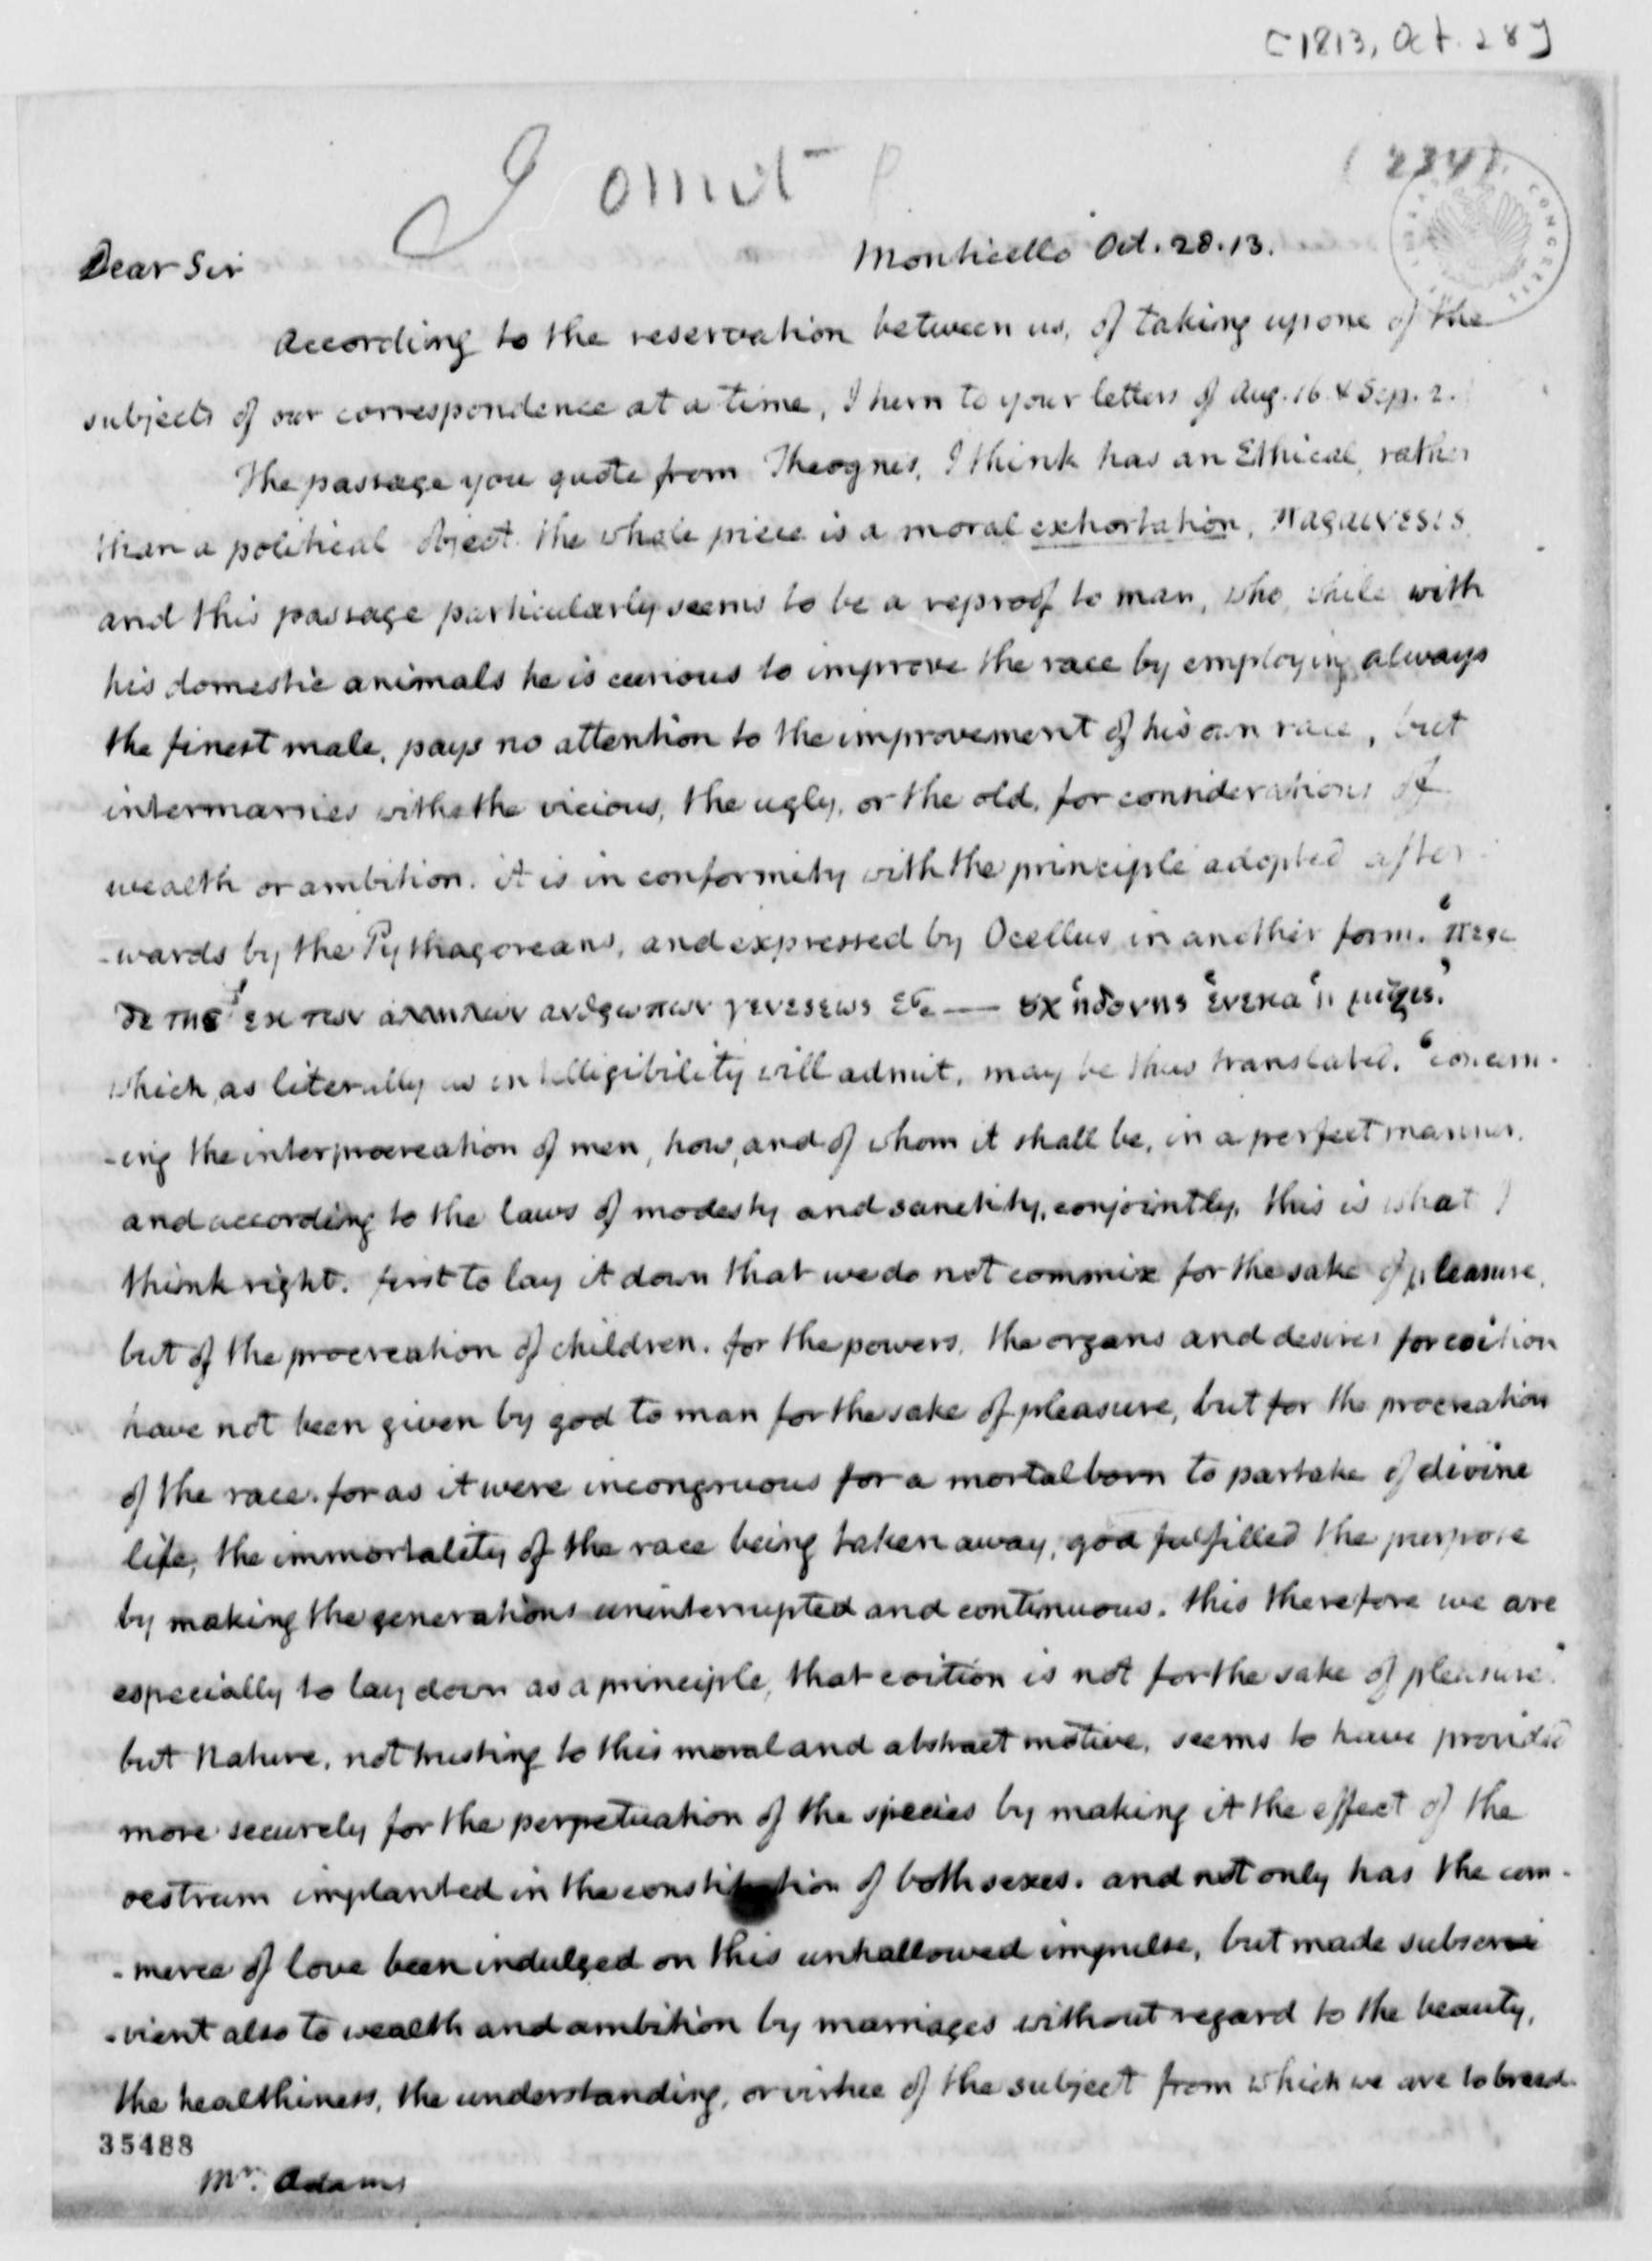 [1813, Oct. 28]
I omit
(234)
Monticello Oct. 28. 13.
Dear Sir
According to the reservation between us, of taking up one of the
subjects of our correspondence at a time, I turn to your letters of Aug. 16. & Sep. 2.
The passage you quote from Theognis, I think has an Ethical, rather
than a political object. the whole piece is a moral exhortation, παραινεσις,
and this passage particularly seems to be a reproof to man, who, while with
his domestic animals he is curious to improve the race by employing always
the finest male, pays no attention to the improvement of his own race, but
intermarries with the vicious, the ugly, or the old, for considerations of
wealth or ambition. it is in conformity with the principle adopted after-
-wards by the Pythagoreans, and expressed by Ocellus in another form. ‘περι
δε της εκ των αλληλων ανθρωπων γενεσεως &c — ουχ ἡδονης ἑνεκα ἡ μιξις.’
which, as literally as intelligibility will admit, may be thus translated. ‘concern-
-ing the interprocreation of men, how, and of whom it shall be, in a perfect manner,
and according to the laws of modesty and sanctity, conjointly, this is what I
think right. first to lay it down that we do not commix for the sake of pleasure,
but of the procreation of children. for the powers, the organs and desires for coition
have not been given by god to man for the sake of pleasure, but for the procreation
of the race. for as it were incongruous for a mortal born to partake of divine
life, the immortality of the race being taken away, god fulfilled the purpose
by making the generations uninterrupted and continuous. this therefore we are
especially to lay down as a principle, that coition is not for the sake of pleasure.’
but Nature, not trusting to this moral and abstract motive, seems to have provided
more securely for the perpetuation of the species by making it the effect of the
oestrum implanted in the constitution of both sexes. and not only has the com-
-merce of love been indulged on this unhallowed impulse, but made subser
-vient also to wealth and ambition by marriages without regard to the beauty,
the healthiness, the understanding, or virtue of the subject from which we are to breed.
35488
Mr. Adams